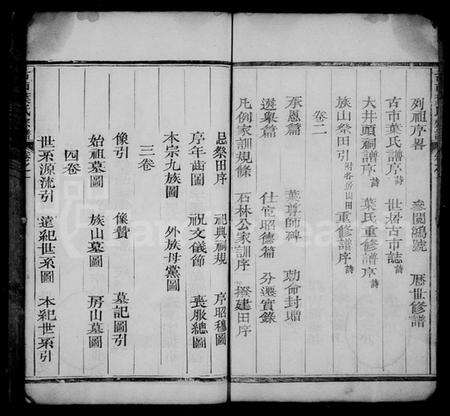 列祖序畧 臺閣鴻號 歷世修譜
古市葉氏譜序 世居古市誌 詩
大井頭祠譜序 葉氏重修譜序 詩
族山祭田引 重修譜序 詩
卷二
承恩篇 葉尊師碑 勅命封贈
選舉篇 仕宦昭德篇 分遷實錄
凡例家訓規條 石林公家訓序 撥建田序
忌祭田序 祀典祠規 序昭穆圖
序年齒圖 祝文儀節 喪服總圖
本宗九族圖 外族母黨圖
三卷
像引 像贊 墓記圖引
始祖墓圖 族山墓圖 房山墓圖
四卷
世系源流引 遠紀世系圖 本紀世系引